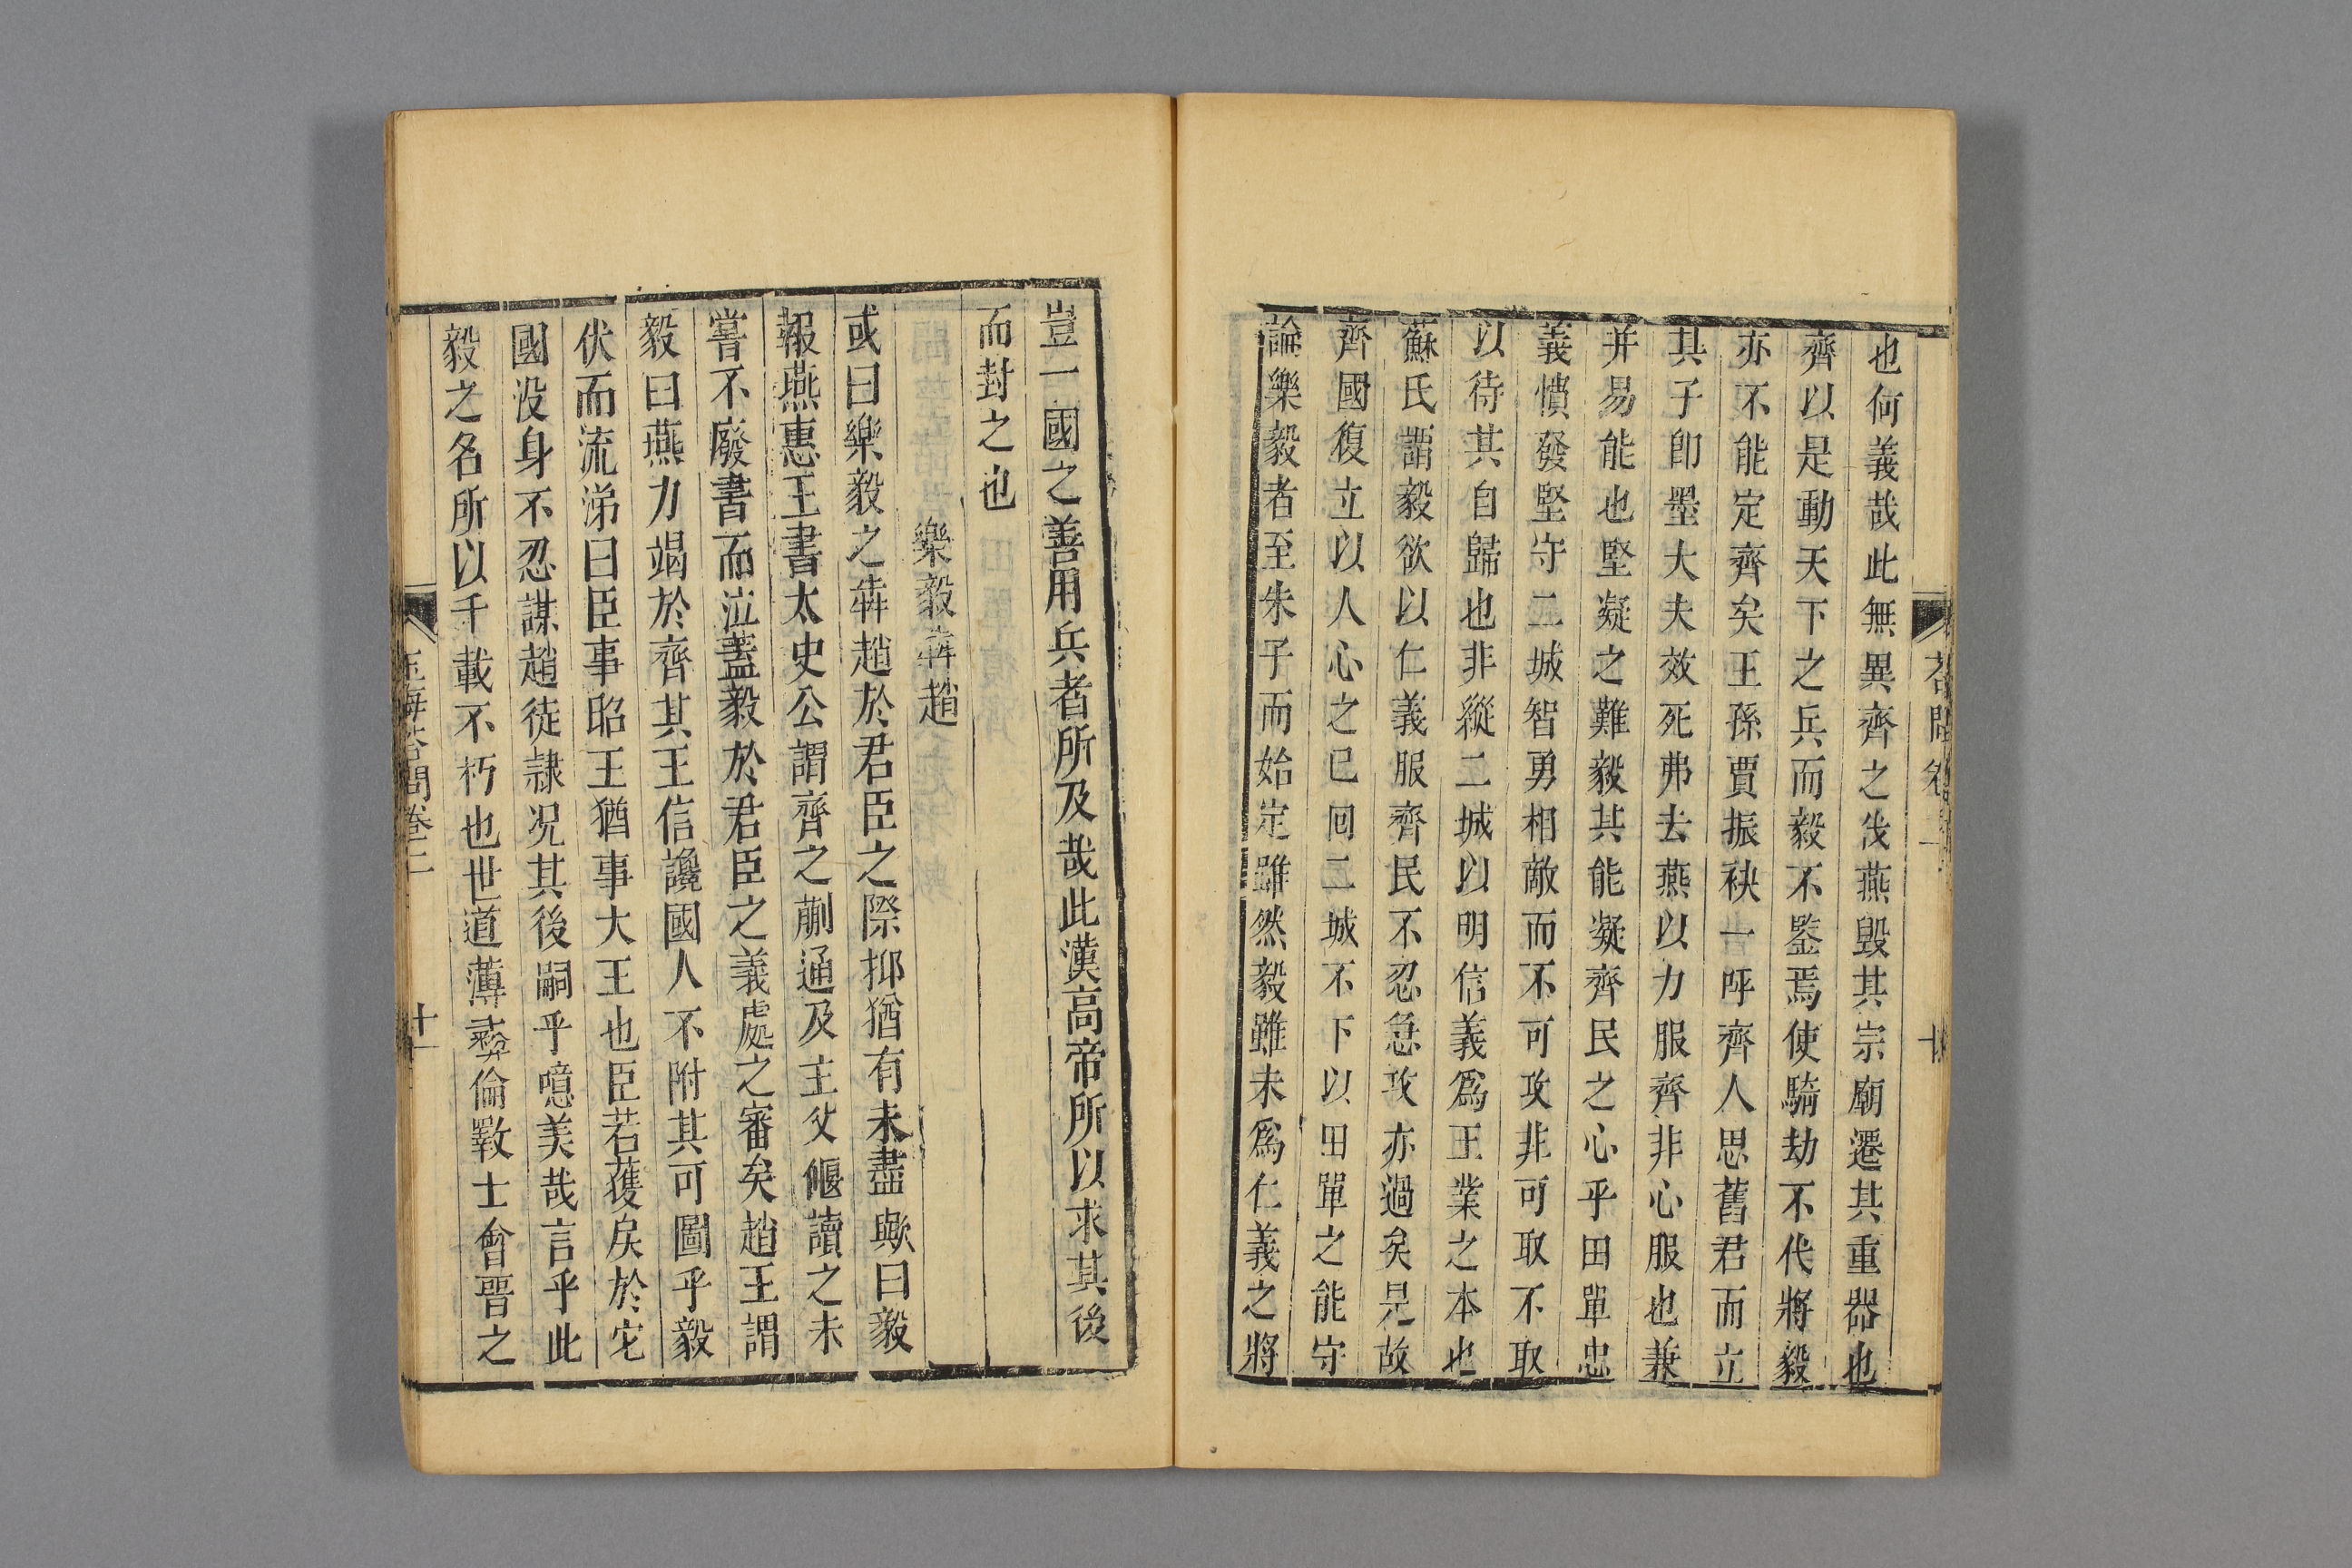 也何義哉此無異齊之伐燕毀其宗廟遷其重器也
齊以是動天下之兵而毅不鑒焉使騎劫不代將毅
亦不能定齊矣王孫賈振袂一呼齊人思舊君而立
其子卽墨大夫效死弗去燕以力服齊非心服也兼
并易能也堅凝之難毅其能凝齊民之心乎田單忠
義憤發堅守二城智勇相敵而不可攻非可取不取
以待其自歸也非縱二城以明信義爲王業之本也
蘇氏謂毅欲以仁義服齊民不忍急攻亦過矣是故
齊國復立以人心之已回二城不下以田單之能守
論樂毅者至朱子而始定雖然毅雖未爲仁義之將
豈一國之善用兵者所及哉此漢高帝所以求其後
而封之也
樂毅犇趙
或曰樂毅之犇趙於君臣之際抑猶有未盡歟曰毅
報燕惠王書太史公謂齊之蒯通及主父偃讀之未
嘗不廢書而泣蓋毅於君臣之義處之審矣趙王謂
毅曰燕力竭於齊其王信讒國人不附其可圖乎毅
伏而流涕曰臣事昭王猶事大王也臣若獲戾於它
國没身不忍謀趙徒隷况其後嗣乎噫美哉言乎此
毅之名所以千載不朽也世道薄彝倫斁士會晉之
玉海荅問卷二
十一